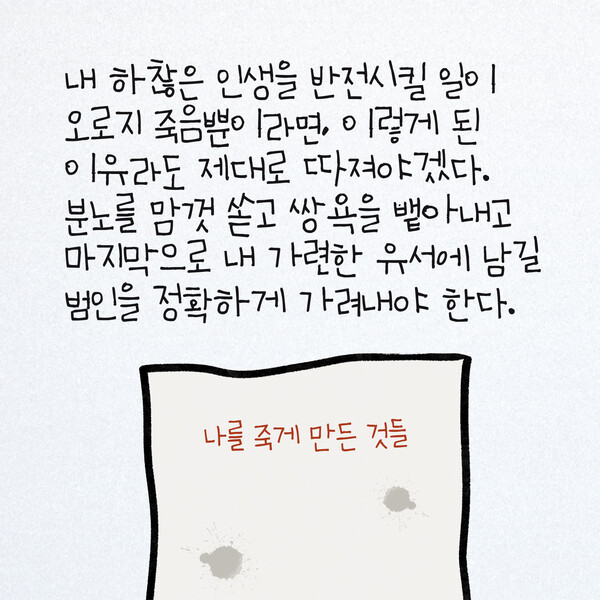 내 하찮은 인생을 반전시킬 일이
오로지 죽음뿐이라면, 이렇게 된
이유라도 제대로 따져야겠다.
분노를 맘껏 쏟고 쌍욕을 뱉아내고
마지막으로 내 가련한 유서에 남길
범인을 정확하게 가려내야 한다.
나를 죽게 만든 것들